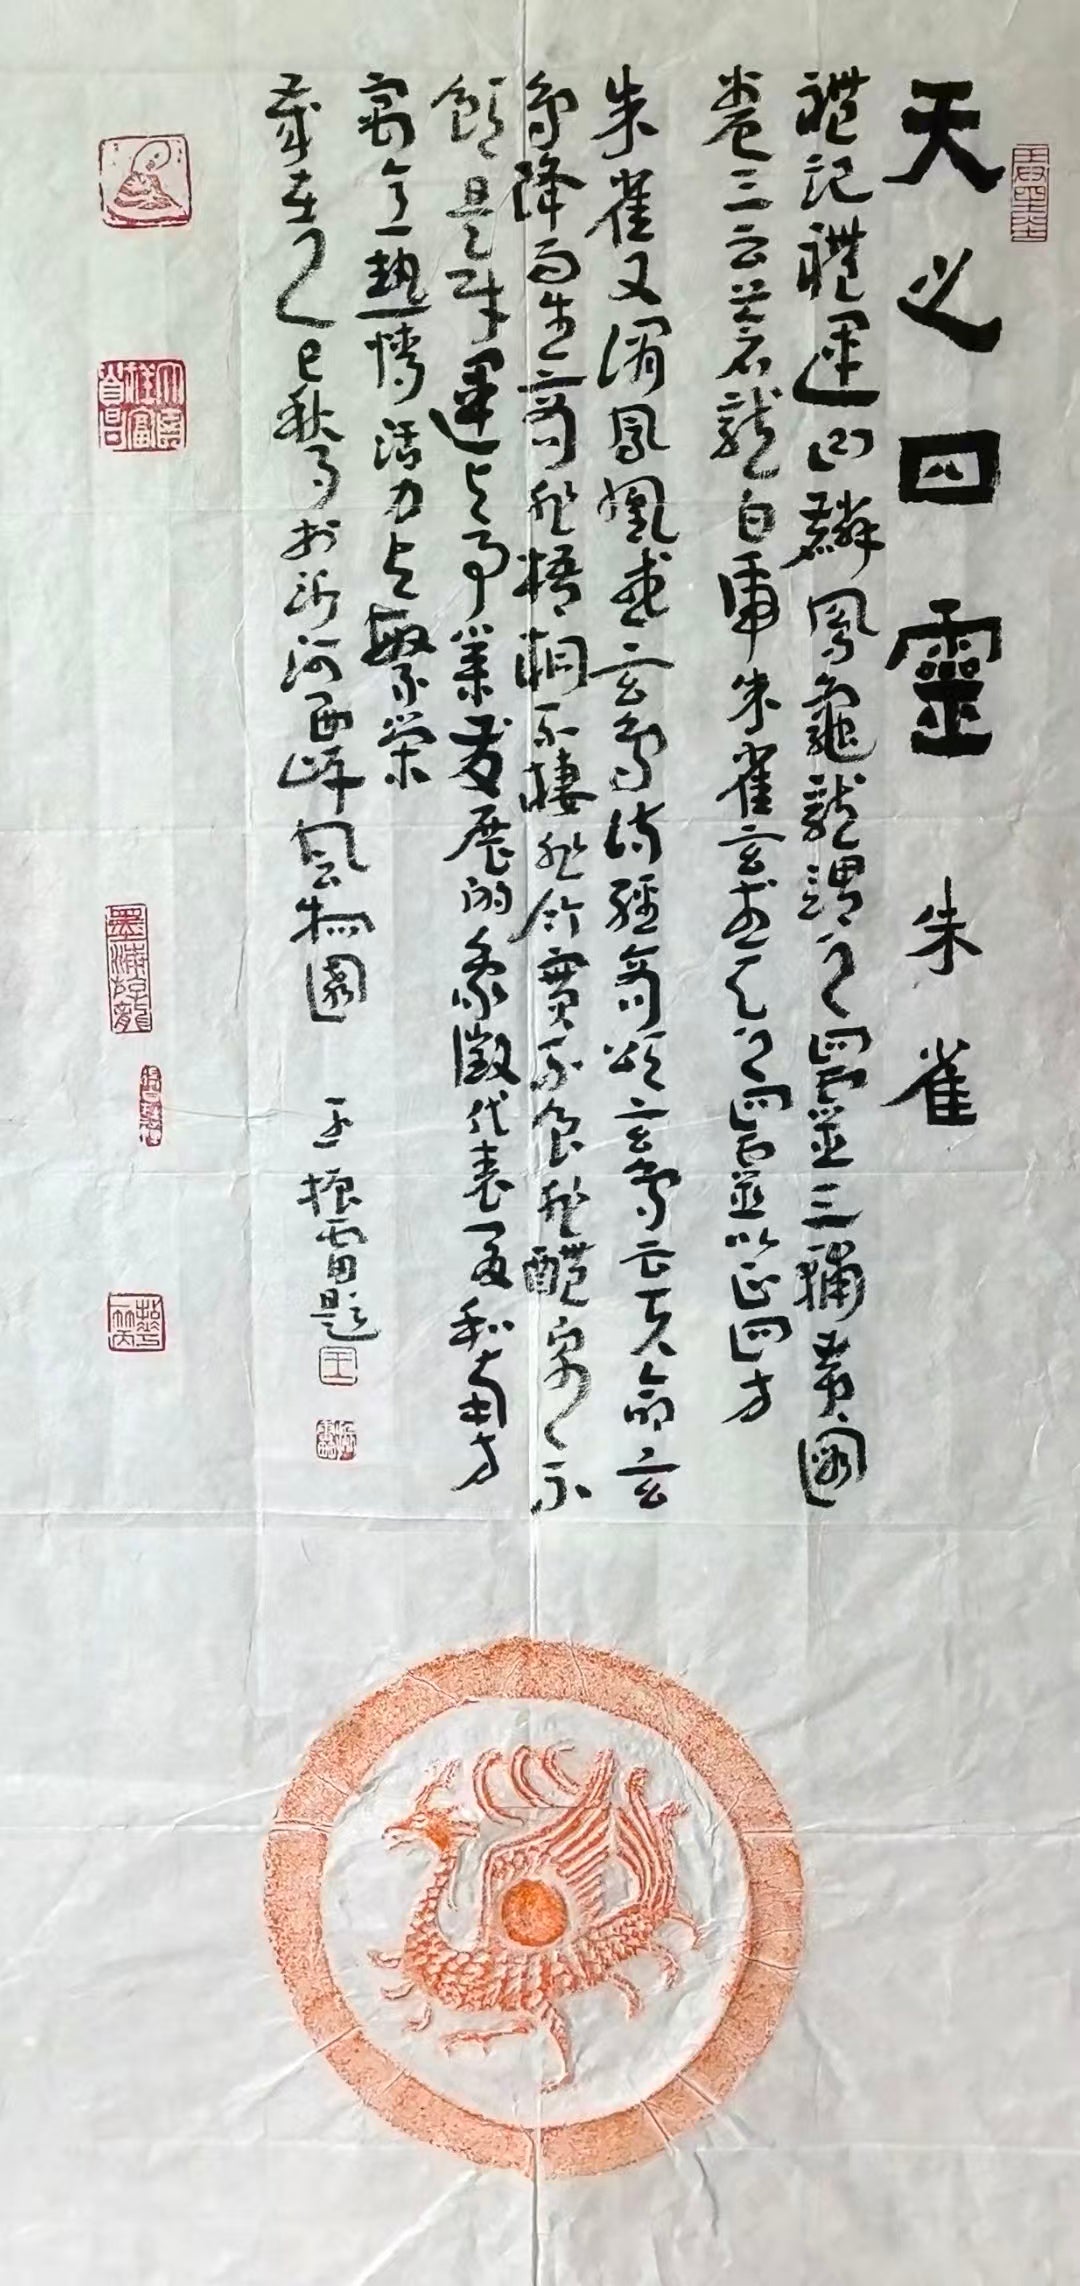 天之四靈 朱雀
禮記禮運曰麟鳳龜龍謂之四靈三輔黄圖
卷三云蒼龍白虎朱雀玄武天之四靈以正四方
朱雀又謂鳳凰或玄鳥詩經商頌玄鳥云天命玄
鳥降而生商非梧桐不棲非竹實不食非醴泉不
飲是財運与事業發展的象徵代表夏和南方
寓意熱情活力与繁荣
歲在乙巳秋月於沂河西岸風物園 王振雷題
王